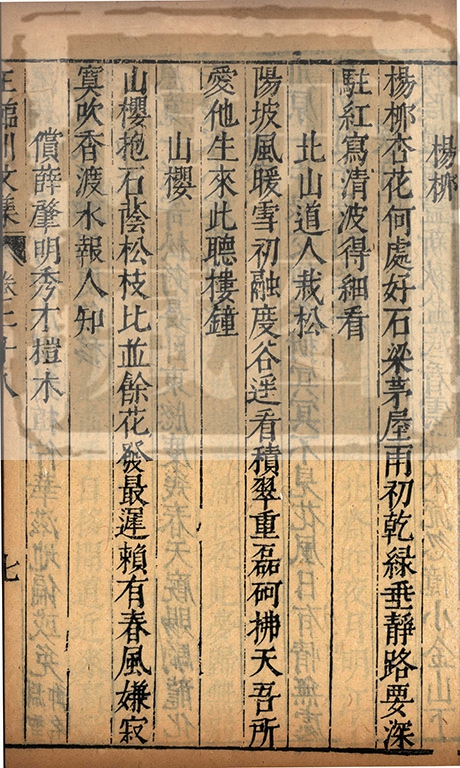 楊桺
楊桺杏花何處好石梁茅屋雨初乾緑垂靜路要深
駐紅寫清波得細看
北山道人栽松
陽坡風暖雪初融度谷遥看積翠重磊砢拂天吾所
愛他生來此聽樓鐘
山櫻
山櫻抱石蔭松枝比並餘花發最遲賴有春風嫌寂
寞吹香渡水報人知
償薛肇明秀才榿木
王臨川文集 卷二十八
七